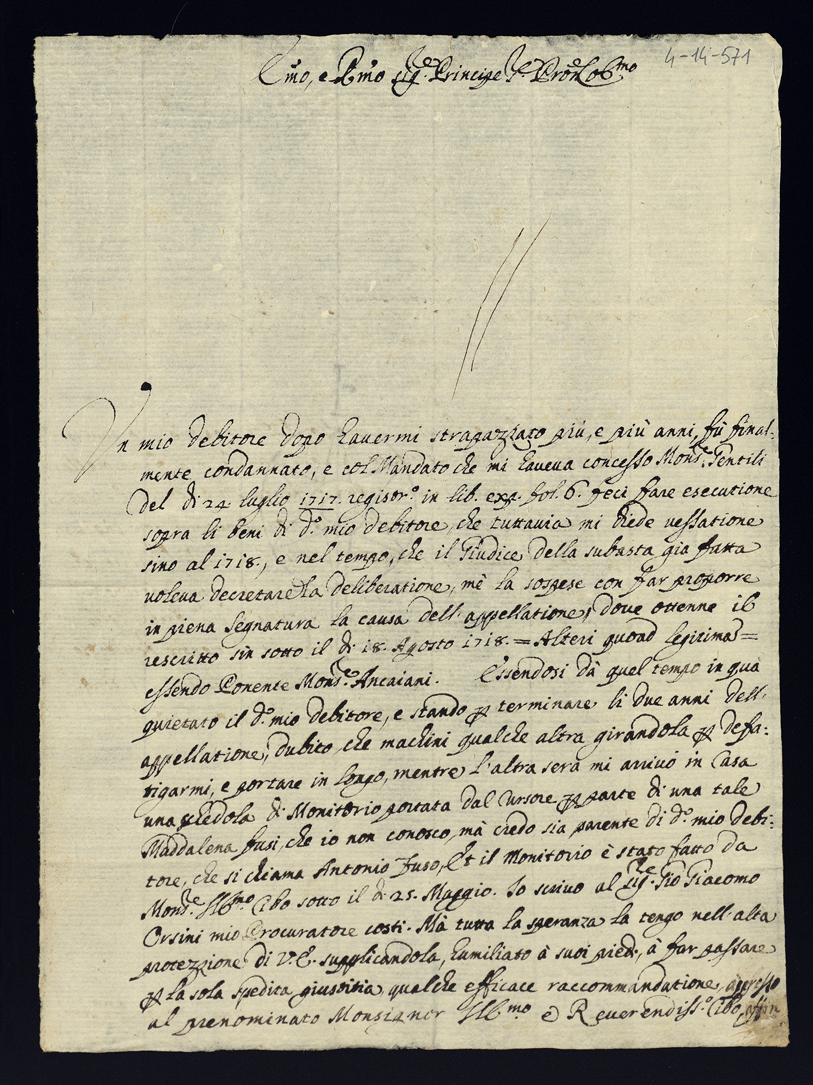 4-14-571
Em̃o, e Rm̃o Sig.re Principe Pr̃on Col.mo
Un mio debitore dopo havermi strapazzato più, e più anni, fù final-
mente condannato, e col Mandato che mi haveva concesso Mons.r Gentili
del dì 24. luglio 1717. registr.o in lib. exp. fol. 6. feci fare esecutione
sopra li beni di d.o mio debitore, che tuttavia mi diede vessatione
sino al 1718, e nel tempo, che il Giudice della subasta già fatta
voleva decretare la deliberatione, mè la sospese con far proporre
in piena Segnatura la causa dell'appellatione, dove ottenne il
rescritto sin sotto il dì 18. Agosto 1718. = Alteri quoad legitima =
essendo Ponente Mons.re Ancaiani. Essendosi dà quel tempo in quà
quietato il d.o mio debitore, e stando p terminare li due anni dell'
appellatione, dubito che machini qualche altra girandola p defa:
tigarmi, e portare in longo, mentre l'altra sera mi arrivò in Casa
una chedola di Monitorio portata dal Cursore p parte di una tale
Maddalena fusi, che io non conosco, mà credo sia parente di d.o mio debi:
tore, che si chiama Antonio fuso, Et il Monitorio è stato fatto da
Mons.re Ill.mo Cibo sotto il dì 25. Maggio. Io scrivo al Sig.re Gio Giacomo
Orsini mio Procuratore costì. Mà tutta la speranza la tengo nell'alta
protezzione di V.E. supplicandola, humiliato à suoi piedi, à far passare
p la sola spedita giustitia qualche efficace raccommandatione appresso
al prenominato Monsignor Ill.mo è Reverendiss.o Cibo, affin